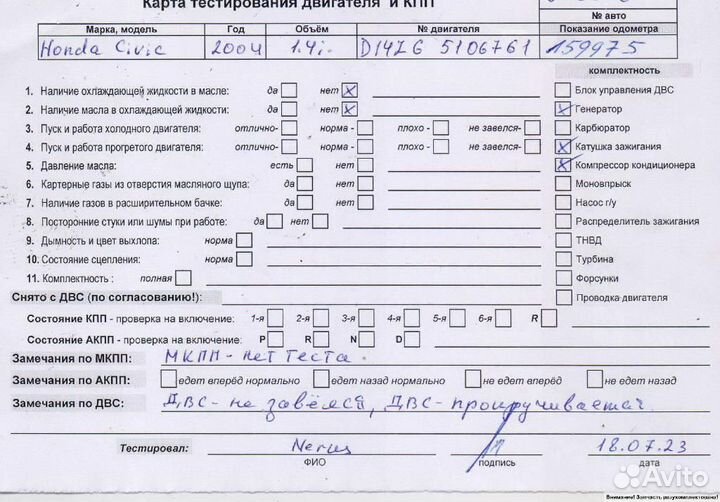 Карта тестирования двигателя и КПП
№ авто
Марка, модель Год Объём № двигателя Показание одометра
Honda Civic 2004 1.4i. D14Z6 5106761 159975
комплектность
1. Наличие охлаждающей жидкости в масле: да нет X Блок управления ДВС
2. Наличие масла в охлаждающей жидкости: да нет X X Генератор
3. Пуск и работа холодного двигателя: отлично- норма - плохо - не завелся- Карбюратор
4. Пуск и работа прогретого двигателя: отлично- норма - плохо - не завелся- X Катушка зажигания
5. Давление масла: есть нет X Компрессор кондиционера
6. Картерные газы из отверстия масляного щупа: да нет Моновпрыск
7. Наличие газов в расширительном бачке: да нет Насос г/у
8. Посторонние стуки или шумы при работе: да нет Распределитель зажигания
9. Дымность и цвет выхлопа: норма ТНВД
10. Состояние сцепления: норма Турбина
11. Комплектность : полная Форсунки
Снято с ДВС (по согласованию!): Проводка двигателя
Состояние КПП - проверка на включение: 1-я 2-я 3-я 4-я 5-я 6-я R
Состояние АКПП - проверка на включение: P R N D
Замечания по МКПП: МКПП - нет теста.
Замечания по АКПП: едет вперёд нормально едет назад нормально не едет вперёд не едет назад
Замечания по ДВС: ДВС - не завёлся, ДВС - прокручивается
Тестировал: 18.07.23
ФИО подпись дата
Avito
Внимание! Запчасть разукомплектована!